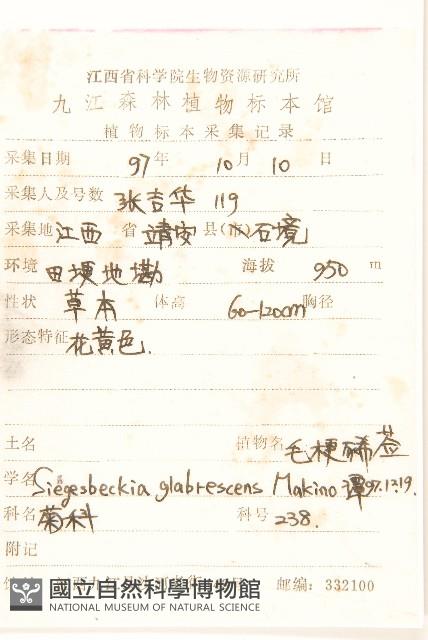 江西省科学院生物资源研究所
九江森林植物标本馆
植物标本采集记录
采集日期 97年 10月 10日
采集人及号数 张吉华 119
采集地 江西 省 靖安 县(市) 石境
环境 田埂地坳 海拔 950 m
性状 草本 体高 60-120cm 胸径
形态特征 花黄色.
土名 植物名 毛梗豨莶
学名 Siegesbeckia glabrescens Makino 谭97.12.19.
科名 菊科 科号 238.
附记
邮编: 332100
國立自然科學博物館
NATIONAL MUSEUM OF NATURAL SCIENCE